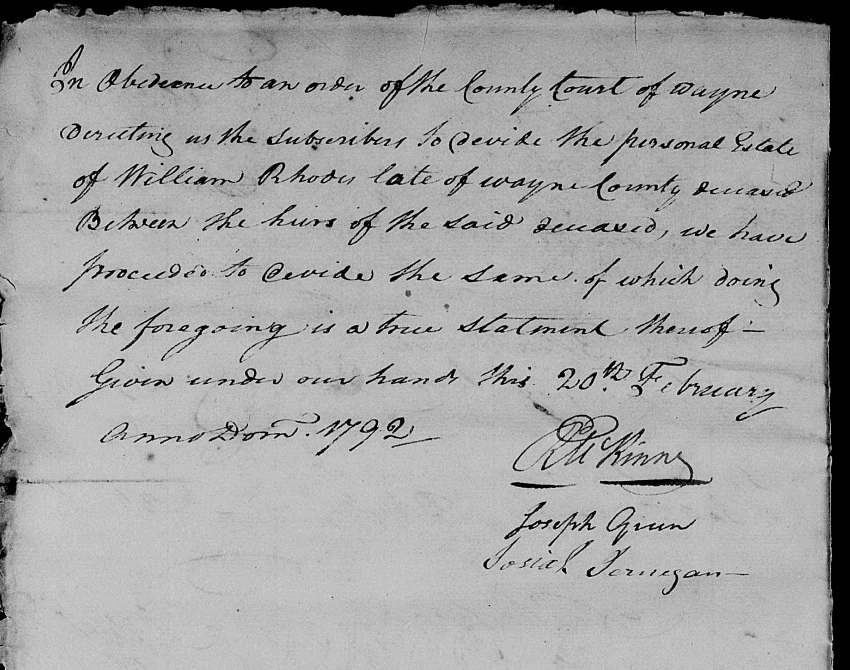 In Obedience to an order of the County Court of Wayne
Directing us the Subscribers to devide the personal Estate
of William Rhodes late of wayne County deceased
Between the heirs of the said deceased, we have
proceeded to devide the same of which doing
the foregoing is a true statment thereof -
Given under our hands this 20th. February
Anno Dom. 1792
McKinne
Joseph Green
Josiah Jernegan